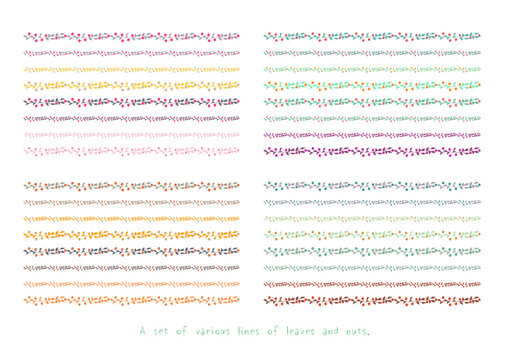 A set of various lines of leaves and nuts.